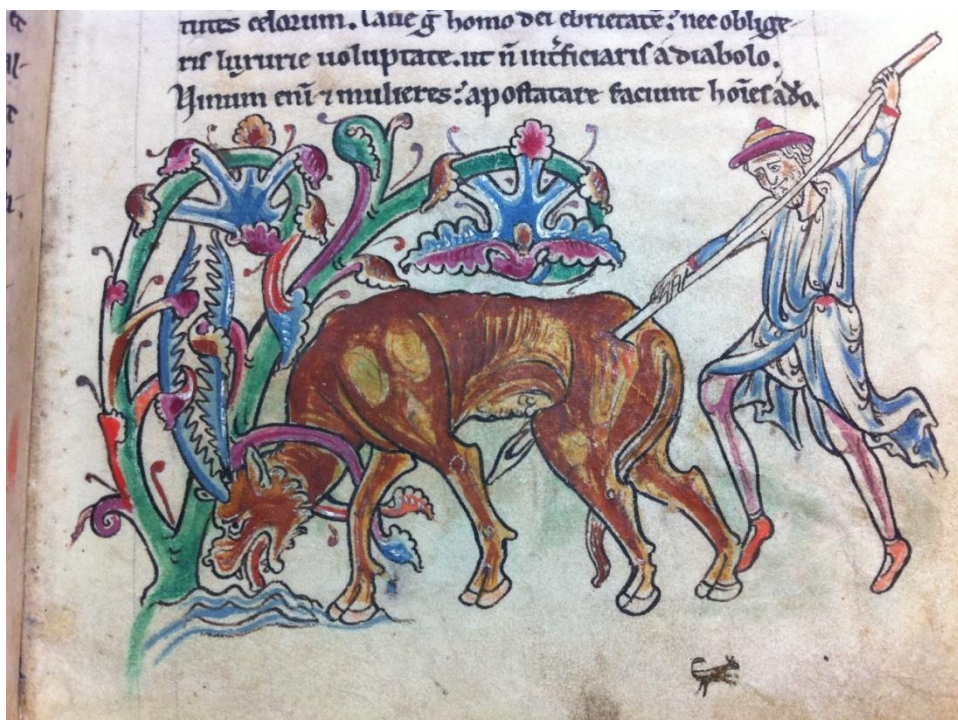 tutes celorum. Caue g̃ homo dei ebrietatē: nec oblige-
ris luxurie uoluptate. ut ñ int̃ficiaris a diabolo.
Uinum eni᷒ ⁊ mulieres: apostatare faciunt hoīes a dō.